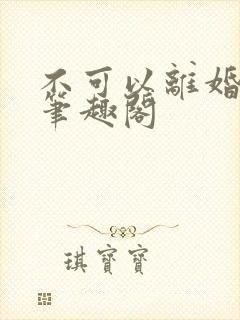 不可以離婚
筆趣閣
琪寶寶